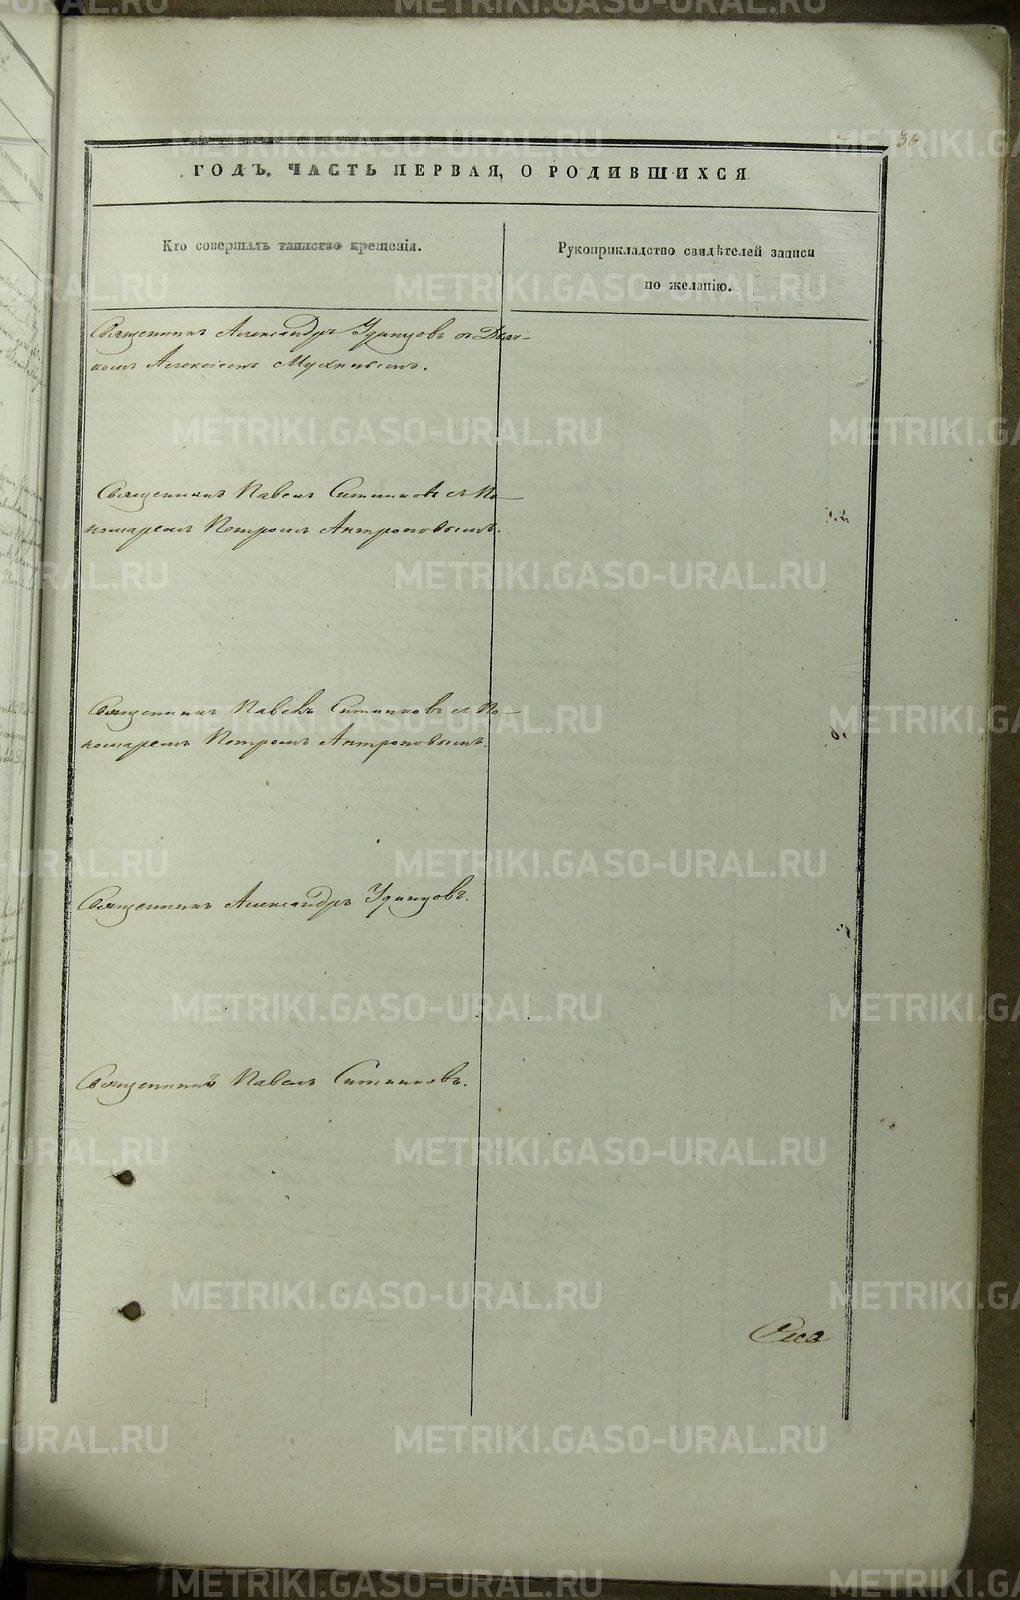 36
ГОДЪ. ЧАСТЬ ПЕРВАЯ, О РОДИВШИХСЯ
Кто совершалъ таинство крещенія.
Рукоприкладство свидѣтелей записи
по желанію.
Священникъ Александръ Удинцовъ съ Дьяч-
комъ Алексіемъ
Священникъ Павелъ Ситниковъ съ По-
номаремъ Петромъ Антроповымъ.
Священникъ Павелъ Ситниковъ съ По-
номаремъ Петромъ Антроповымъ.
Священникъ Александръ Удинцовъ.
Священникъ Павелъ Ситниковъ.
METRIKI.GASO-URAL.RU